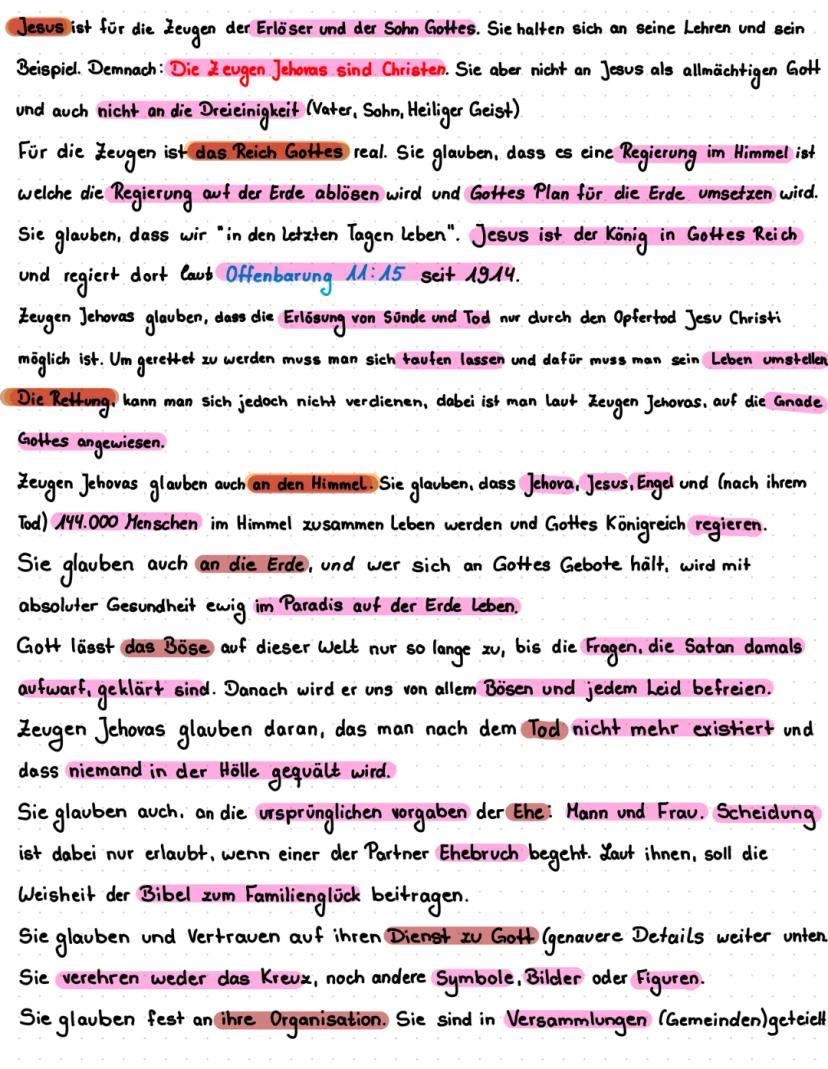 Jesus ist für die Zeugen der Erlöser und der Sohn Gottes. Sie halten sich an seine Lehren und sein
Beispiel. Demnach: Die Zeugen Jehovas sind Christen. Sie aber nicht an Jesus als allmächtigen Gott
und auch nicht an die Dreieinigkeit (Vater, Sohn, Heiliger Geist)
Für die Zeugen ist das Reich Gottes real. Sie glauben, dass es eine Regierung im Himmel ist
welche die Regierung auf der Erde ablösen wird und Gottes Plan für die Erde umsetzen wird.
Sie glauben, dass wir "in den letzten Tagen leben". Jesus ist der König in Gottes Reich
und regiert dort laut Offenbarung 11:15 seit 1914.
Zeugen Jehovas glauben, dass die Erlösung von Sünde und Tod nur durch den Opfertod Jesu Christi
möglich ist. Um gerettet zu werden muss man sich taufen lassen und dafür muss man sein Leben umstellen
Die Rettung, kann man sich jedoch nicht verdienen, dabei ist man laut Zeugen Jehovas, auf die Gnade
Gottes angewiesen.
Zeugen Jehovas glauben auch an den Himmel. Sie glauben, dass Jehova, Jesus, Engel und (nach ihrem
Tod) 144.000 Menschen im Himmel zusammen Leben werden und Gottes Königreich regieren.
Sie glauben auch an die Erde, und wer sich an Gottes Gebote hält, wird mit
absoluter Gesundheit ewig im Paradis auf der Erde Leben.
Gott lässt das Böse auf dieser Welt nur so lange zu, bis die Fragen, die Satan damals
aufwarf, geklärt sind. Danach wird er uns von allem Bösen und jedem Leid befreien.
Zeugen Jehovas glauben daran, das man nach dem Tod nicht mehr existiert und
dass niemand in der Hölle gequält wird.
Sie glauben auch, an die ursprünglichen vorgaben der Ehe: Mann und Frau. Scheidung
ist dabei nur erlaubt, wenn einer der Partner Ehebruch begeht. Laut ihnen, soll die
Weisheit der Bibel zum Familienglück beitragen.
Sie glauben und Vertrauen auf ihren Dienst zu Gott (genauere Details weiter unten.
Sie verehren weder das Kreuz, noch andere Symbole, Bilder oder Figuren.
Sie glauben fest an ihre Organisation. Sie sind in Versammlungen (Gemeinden) geteielt